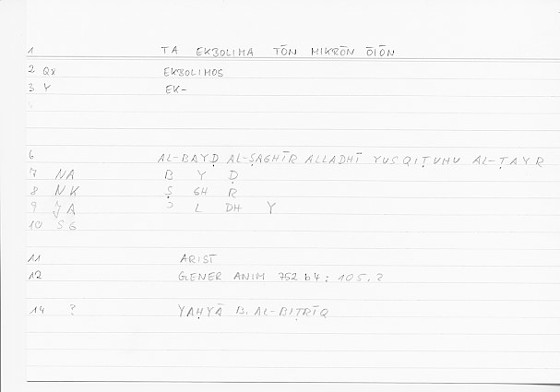 1 TA EKBOLIMA TŌN MIKRŌN ŌIŌN
2 Qx EKBOLIMOS
3 Y EK-
6 AL-BAYḌ AL-ṢAGHĪR ALLADHĪ YUSQIṬUHU AL-ṬAYR
7 NA B Y Ḍ
8 NK Ṣ GH R
9 JA Ɔ L DH Y
10 SG
11 ARIST
12 GENER ANIM 752 b4; 105.2
14 ? YAḤYĀ B. AL-BIṬRĪQ